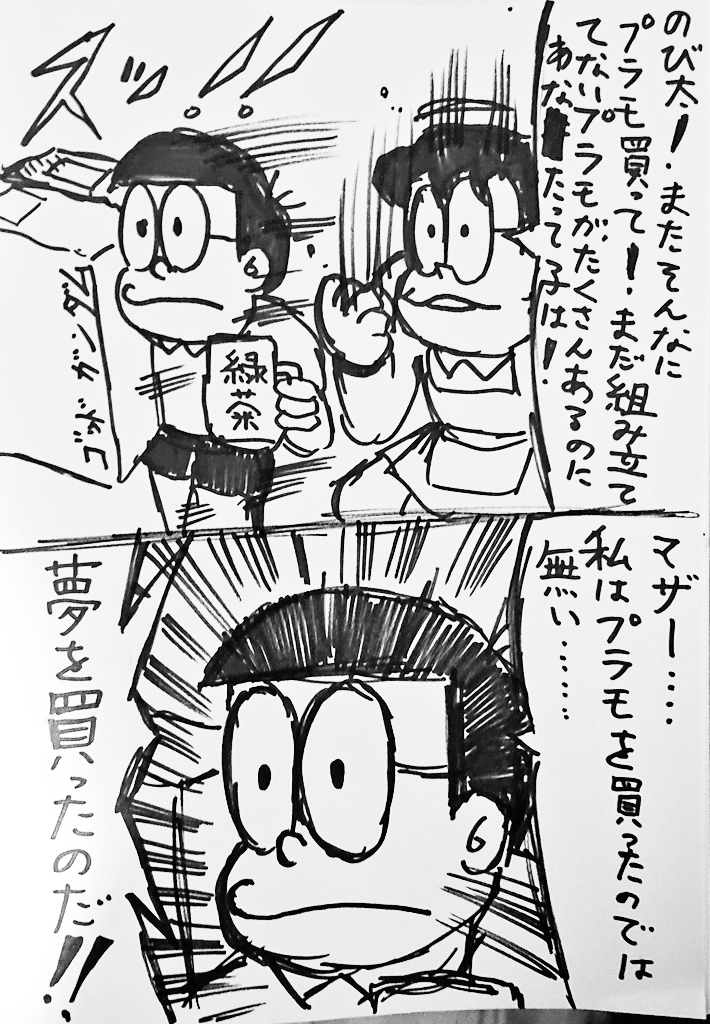 のび太!またそんなに
プラモ買って!まだ組み立て
てないプラモがたくさんあるのに
あなたって子は!
ズッ!!
緑
茶
ゴッドガンダム
マザー....
私はプラモを買ったのでは
無い.......
夢を買ったのだ!!